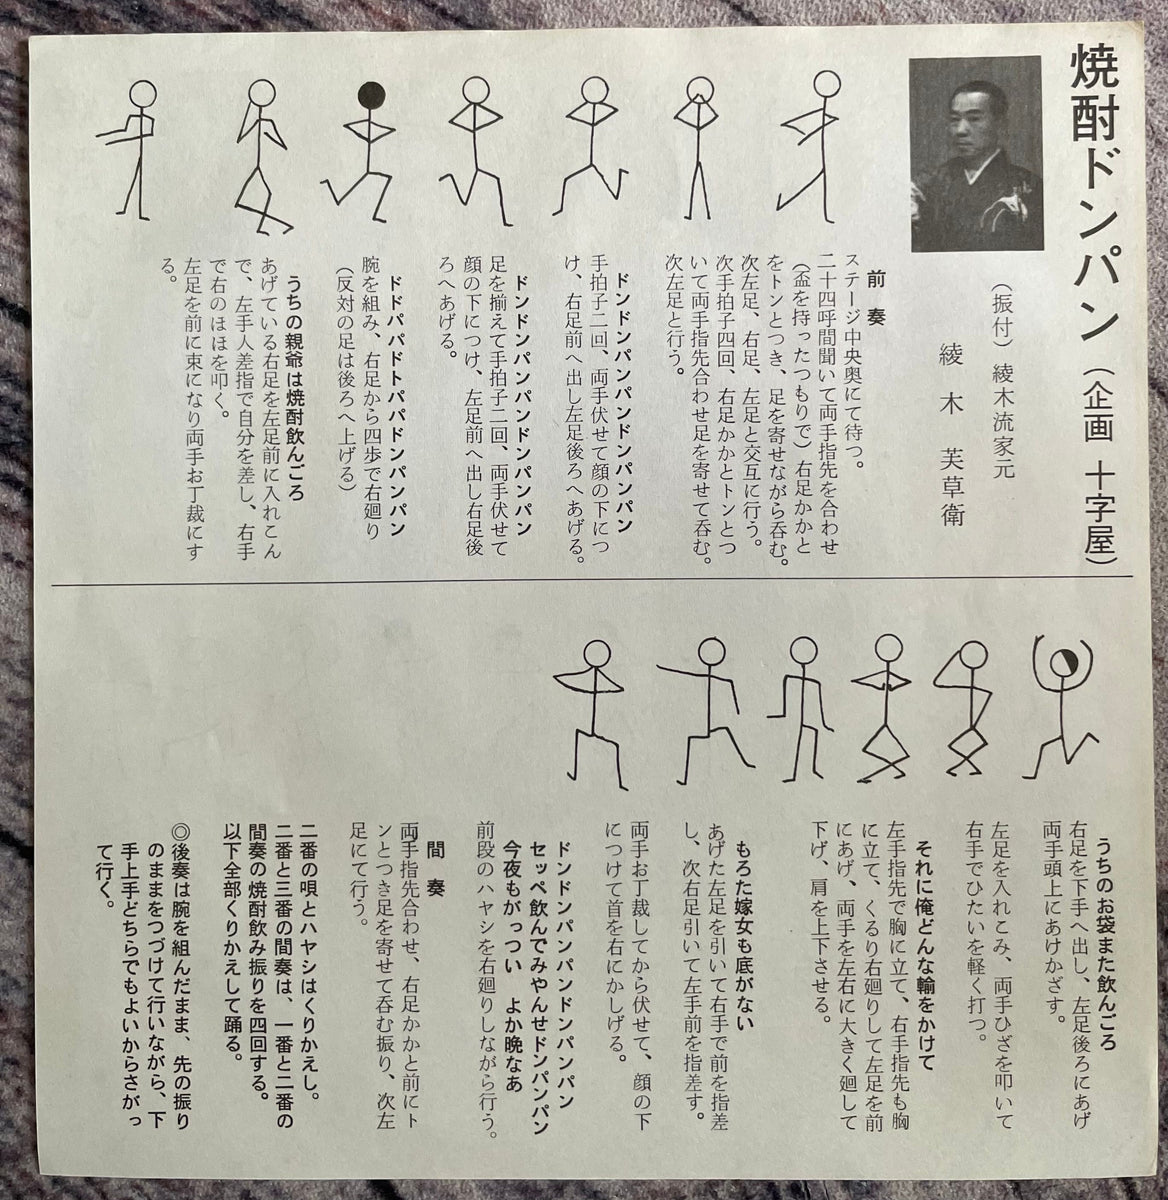 焼酎ドンパン（企画 十字屋）
（振付）綾木流家元
綾木 芙草衛
前奏
ステージ中央奥にて待つ。
二十四呼間聞いて両手指先を合わせ
（盃を持ったつもりで）右足かかと
をトンとつき、足を寄せながら呑む。
次左足、右足、左足と交互に行う。
次手拍子四回、右足かかとトンとつ
いて両手指先合わせ足を寄せて呑む。
次左足と行う。
ドンドンパンパンドンパンパン
手拍子二回、両手伏せて顔の下につ
け、右足前へ出し左足後ろへあげる。
ドンドンパンパンドンパンパン
足を揃えて手拍子二回、両手伏せて
顔の下につけ、左足前へ出し右足後
ろへあげる。
ドドパパドトパパドンパンパン
腕を組み、右足から四歩で右廻り
（反対の足は後ろへ上げる）
うちの親爺は焼酎飲んごろ
あげている右足を左足前に入れこん
で、左手人差指で自分を差し、右手
で右のほほを叩く。
左足を前に束になり両手お丁裁にす
る。
うちのお袋また飲んごろ
右足を下手へ出し、左足後ろにあげ
両手頭上にあけかざす。
左足を入れこみ、両手ひざを叩いて
右手でひたいを軽く打つ。
それに俺どんな輸をかけて
左手指先で胸に立て、右手指先も胸
に立て、くるり右廻りして左足を前
にあげ、両手を左右に大きく廻して
下げ、肩を上下させる。
もろた嫁女も底がない
あげた左足を引いて右手で前を指差
し、次右足引いて左手前を指差す。
両手お丁裁してから伏せて、顔の下
につけて首を右にかしげる。
ドンドンパンパンドンパンパン
セッペ飲んでみやんせドンパンパン
今夜もがっつい よか晩なあ
前段のハヤシを右廻りしながら行う。
間奏
両手指先合わせ、右足かかと前にト
ンとつき足を寄せて呑む振り、次左
足にて行う。
二番の唄とハヤシはくりかえし。
二番と三番の間奏は、一番と二番の
間奏の焼酎飲み振りを四回する。
以下全部くりかえして踊る。
◎後奏は腕を組んだまま、先の振り
のままをつづけて行いながら、下
手上手どちらでもよいからさがっ
て行く。